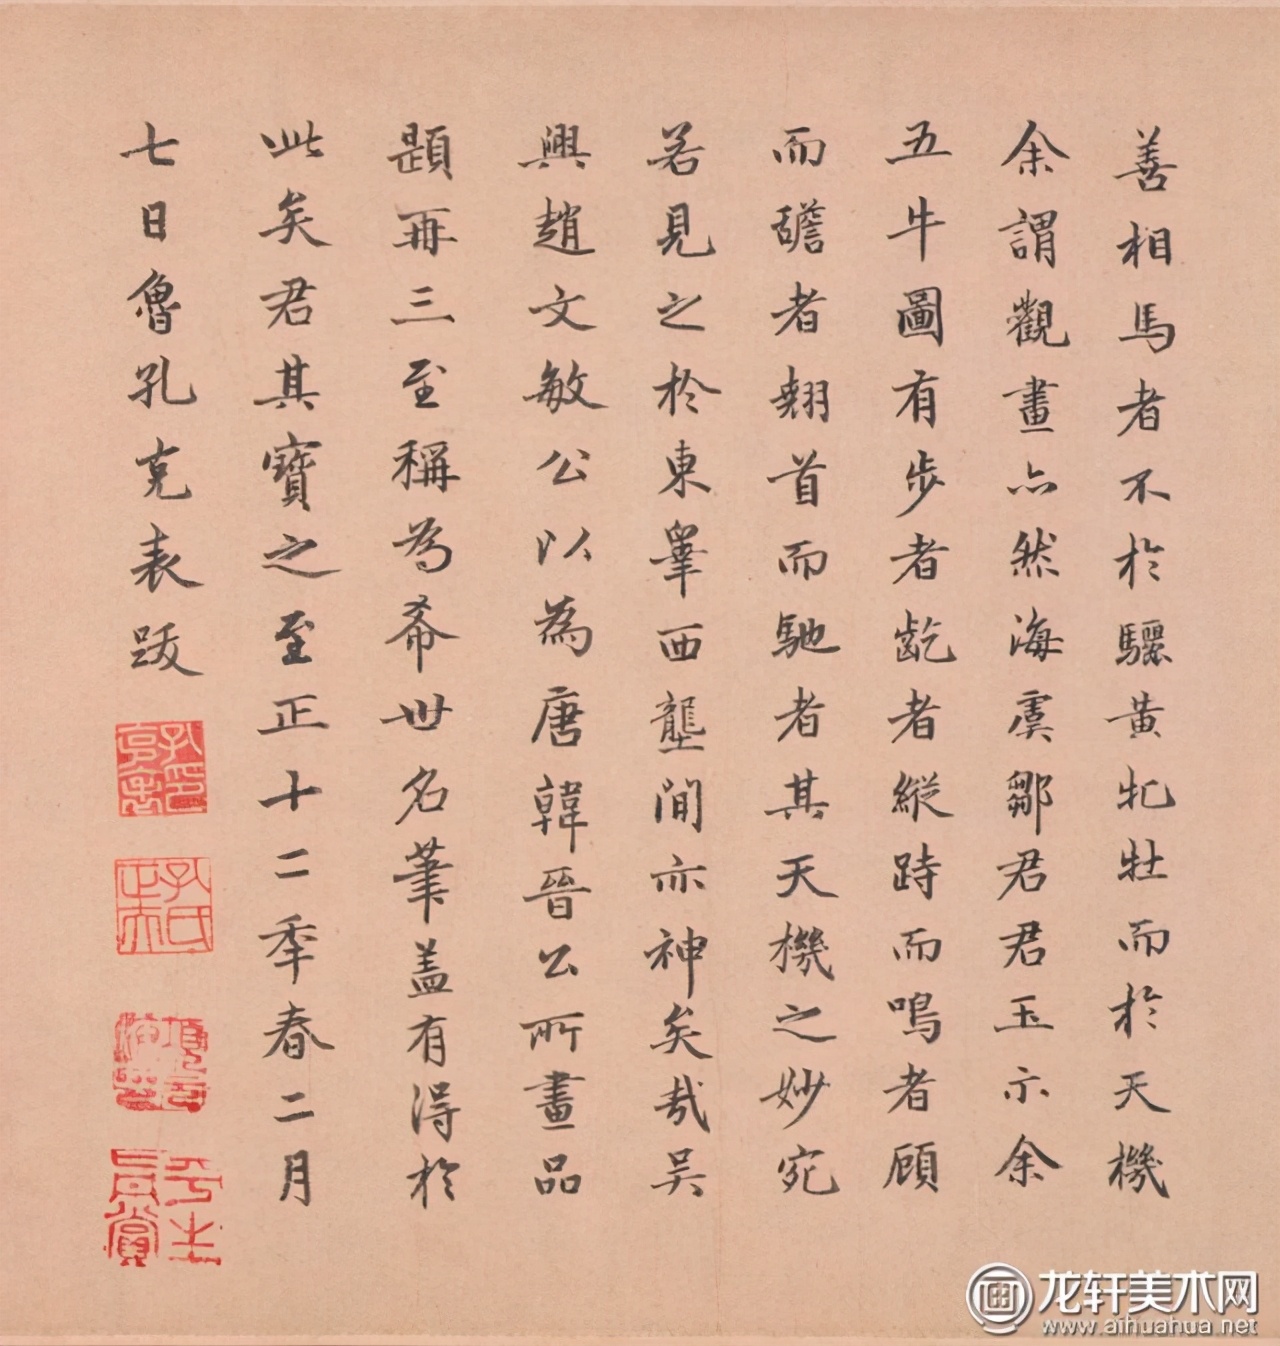 善相馬者不於驪黃牝牡而於天機
余謂觀畫亦然海虞鄒君君玉示余
五牛圖有步者齕者縱跱而鳴者顧
而舐者翹首而馳者其天機之妙宛
若見之於東睪西壟間亦神矣哉吳
興趙文敏公以為唐韓晉公所畫品
題再三至稱為希世名筆蓋有得於
此矣君其寶之至正十二年春二月
七日魯孔克表跋
龙轩美术网
www.aihuahua.net